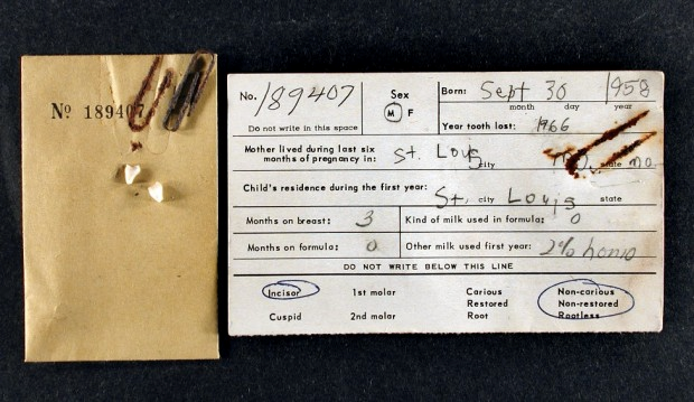 Nº 189407
No. 189407
Sex
M F
Born: Sept 30 1958
month day year
Do not write in this space
Year tooth lost: 1966
Mother lived during last six
months of pregnancy in: St. Louis mo.
city state
Child's residence during the first year: St. Louis
city state
Months on breast: 3
Kind of milk used in formula: 0
Months on formula: 0
Other milk used first year: 2% homo
DO NOT WRITE BELOW THIS LINE
Incisor 1st molar Carious Non-carious
Restored Non-restored
Cuspid 2nd molar Root Rootless